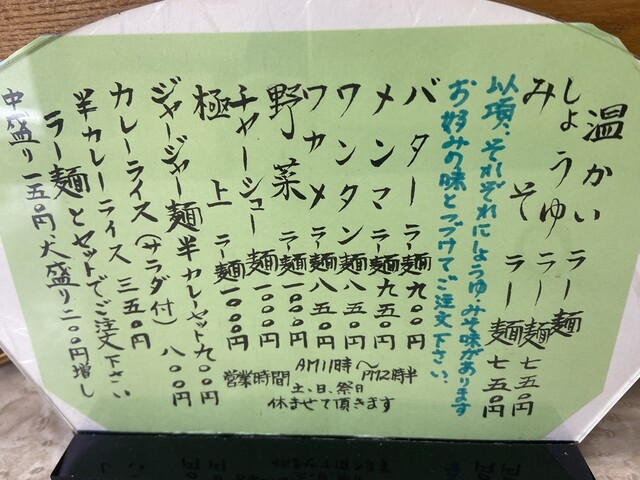 温かいラー麺
しょうゆラー麺 七五〇円
みそラー麺 七五〇円
以項、それぞれにしょうゆ・みそ味があります
お好みの味とつづけてご注文下さい。
バターラー麺 九〇〇円
メンマラー麺 九五〇円
ワンタンラー麺 八五〇円
ワカメラー麺 八五〇円
野菜ラー麺 一〇〇〇円
チャーシュー麺 一〇〇〇円
極上ラー麺 一〇〇〇円
ジャージャー麺半カレーセット 九〇〇円
カレーライス(サラダ付) 八〇〇円
半カレーライス 三五〇円
ラー麺とセットでご注文下さい
中盛り一五〇円・大盛り二〇〇円増し
営業時間 AM11時〜PM2時半
土、日、祭日
休ませて頂きます